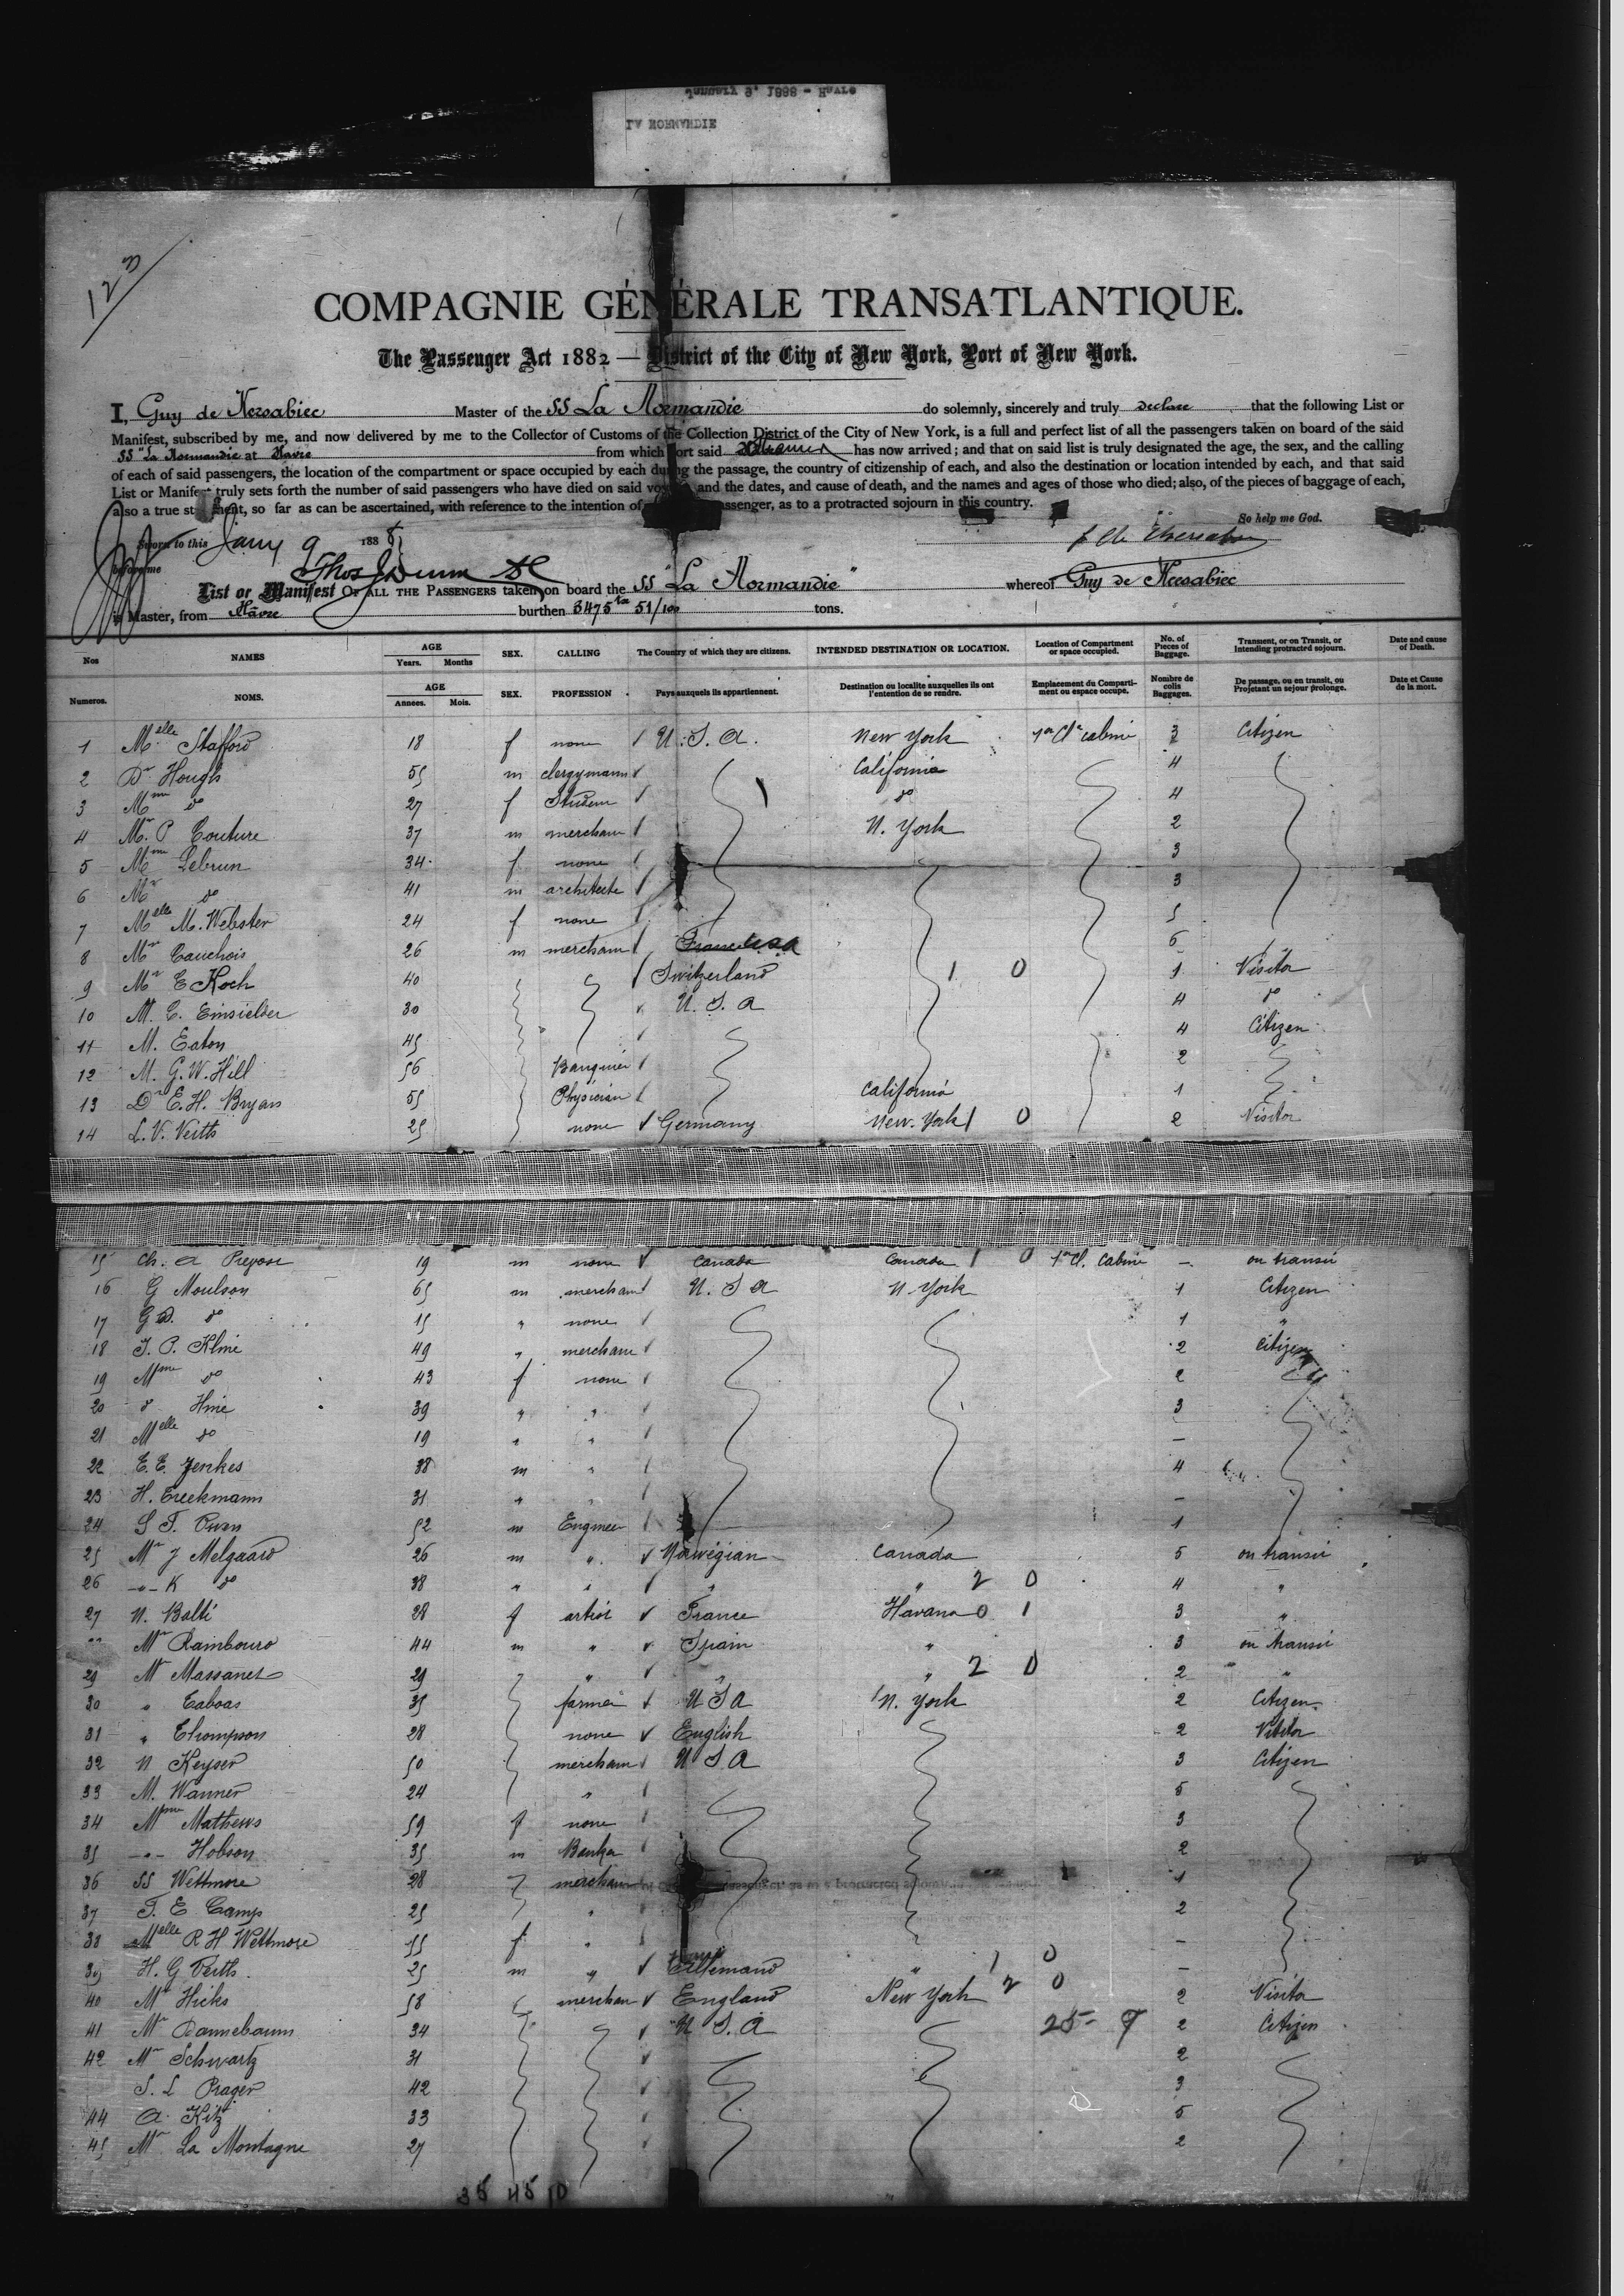 JANUARY 9, 1888 - HAVRE
LA NORMANDIE
12 n
COMPAGNIE GÉNÉRALE TRANSATLANTIQUE.
The Passenger Act 1882 — District of the City of New York, Port of New York.
I, Guy de Kersabiec Master of the SS La Normandie do solemnly, sincerely and truly declare that the following List or
Manifest, subscribed by me, and now delivered by me to the Collector of Customs of the Collection District of the City of New York, is a full and perfect list of all the passengers taken on board of the said
SS "La Normandie at Havre from which port said Steamer has now arrived; and that on said list is truly designated the age, the sex, and the calling
of each of said passengers, the location of the compartment or space occupied by each during the passage, the country of citizenship of each, and also the destination or location intended by each, and that said
List or Manifest truly sets forth the number of said passengers who have died on said voyage, and the dates, and cause of death, and the names and ages of those who died; also, of the pieces of baggage of each,
also a true statement, so far as can be ascertained, with reference to the intention of passenger, as to a protracted sojourn in this country.
So help me God.
Sworn to this Jany 9 1888
before me
List or Manifest OF ALL THE PASSENGERS taken on board the SS "La Normandie" whereof Guy de Kersabiec
is Master, from Hâvre burthen 3475 tx 51/100 tons.
Nos NAMES AGE Years. Months SEX. CALLING The Country of which they are citizens. INTENDED DESTINATION OR LOCATION. Location of Compartment or space occupied. No. of Pieces of Baggage. Transient, or on Transit, or Intending protracted sojourn. Date and cause of Death.
Numeros. NOMS. AGE Annees. Mois. SEX. PROFESSION Pays auxquels ils appartiennent. Destination ou localite auxquelles ils ont l'entention de se rendre. Emplacement du Compartiment ou espace occupe. Nombre de colis Baggages. De passage, ou en transit, ou Projetant un sejour prolonge. Date et Cause de la mort.
1 Melle Stafford 18 f none U. S. A. New York 1re Cl. cabine 3 Citizen
2 Dr Hough 55 m clergymann California 4
3 Mme do 27 f Student do 4
4 Mr. P Couture 37 m merchant N. York 2
5 Mme Lebrun 34 f none 3
6 Mr do 41 m architecte 3
7 Melle M. Webster 24 f none 5
8 Mr Cauchois 26 m merchant France USA 6
9 Mr E Koch 40 Switzerland 1 0 1 Visitor
10 M. C. Einsielder 30 U. S. A 4 do
11 M. Eaton 45 4 Citizen
12 M. G. W. Hill 56 Banquier 2
13 Dr E. H. Bryan 55 Physician California 1
14 L. V. Veitts 25 none Germany New. York 1 0 2 Visitor
15 Ch. A 19 m none Canada Canada 1 0 1re Cl. Cabine - on transit
16 G Moulson 65 m merchant U. S A N. York 1 Citizen
17 G B. do 15 " none 1 "
18 J. P. Kline 49 " merchant 2 Citizen
19 Mme do 43 f none 2
20 d Hine 39 " " 3
21 Melle do 19 " " -
22 E. E. Jenkes 38 m " 4
23 H. 31 " " -
24 S F. Owen 52 m Engineer 1
25 Mr J Melgaard 26 m " Norwegian Canada 5 on transit
26 -"- K do 38 " " " " 2 0 4 "
27 N. Balti 28 f artist France Havana 0 1 3 "
Mr Rambouro 44 m " Spain " 3 on transit
29 Mr Massanet 29 " " " 2 0 2 "
30 " Taboas 35 farmer U S A N. York 2 Citizen
31 " Thompson 28 none English 2 Visitor
32 N Keyser 50 merchant U S A 3 Citizen
33 M. Wanner 24 " 5
34 Mme Mathews 59 f none 3
35 -"- Hobson 35 m Banker 2
36 SS Wettmore 28 merchant 1
37 T. E Camp 25 " 2
38 Melle R H Wettmore 55 f " -
39 H. G Veitts 25 m " Allemand " 1 0 -
40 Mr Hicks 58 merchan England New York 2 0 2 Visitor
41 Mr Dannebaum 34 U S. A 25 - 9 2 Citizen
42 Mr Schwartz 31 2
S. L Prager 42 3
44 A. Kitz 33 5
45 Mr La Montagne 27 2
35 45 10